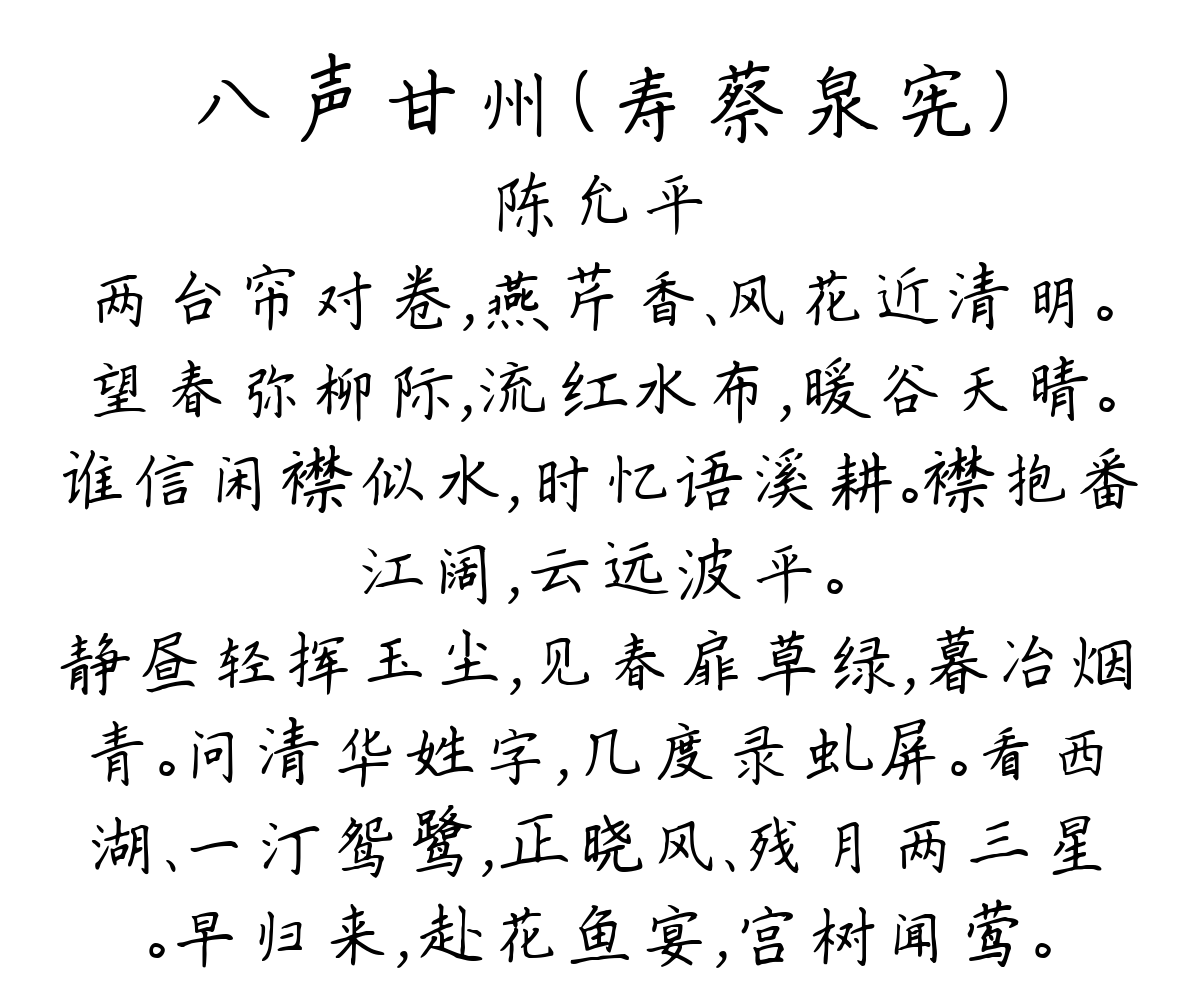 八声甘州(寿蔡泉宪)
陈允平
两台帘对卷,燕芹香、风花近清明。
望春弥柳际,流红水布,暖谷天晴。
谁信闲襟似水,时忆语溪耕。襟抱番
江阔,云远波平。
静昼轻挥玉尘,见春扉草绿,暮冶烟
青。问清华姓字,几度录虬屏。看西
湖、一汀鸳鹭,正晓风、残月两三星
。早归来,赴花鱼宴,宫树闻莺。